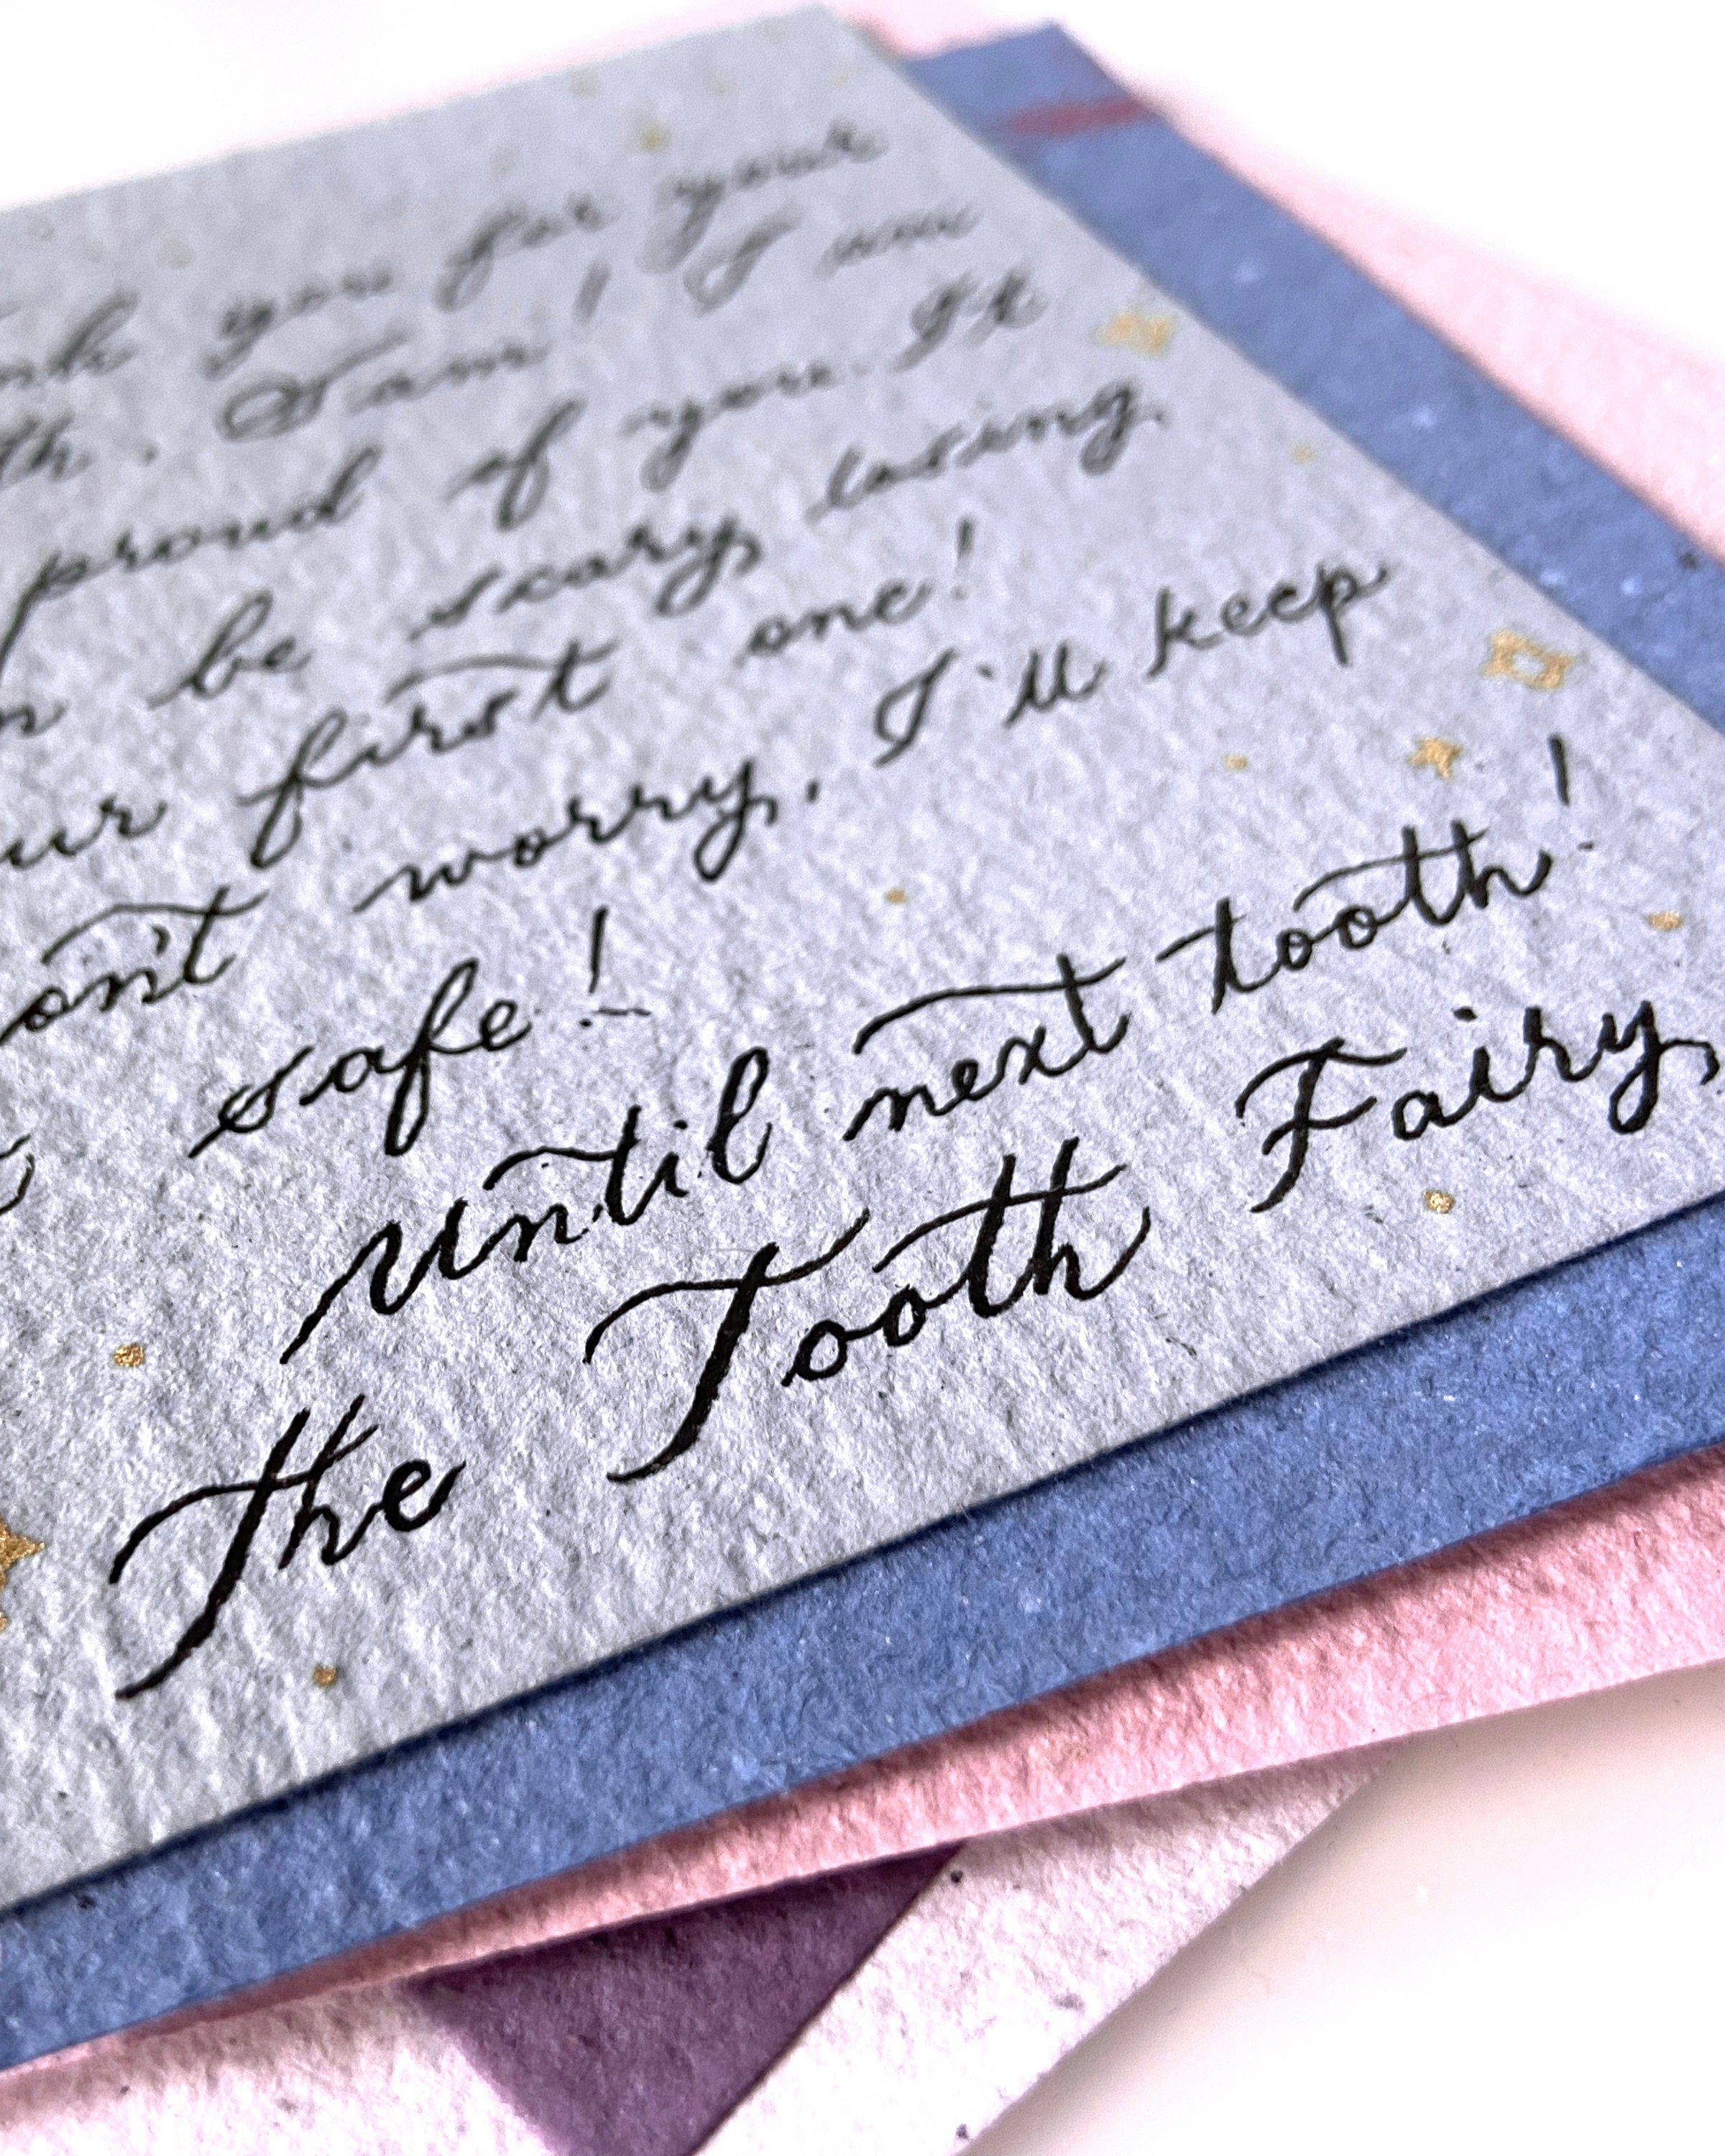 nk you for your
th, Sam! I am
proud of you. It
n be scary losing
ur first one!
on't worry, I'll keep
t safe!
Until next tooth!
the Tooth Fairy